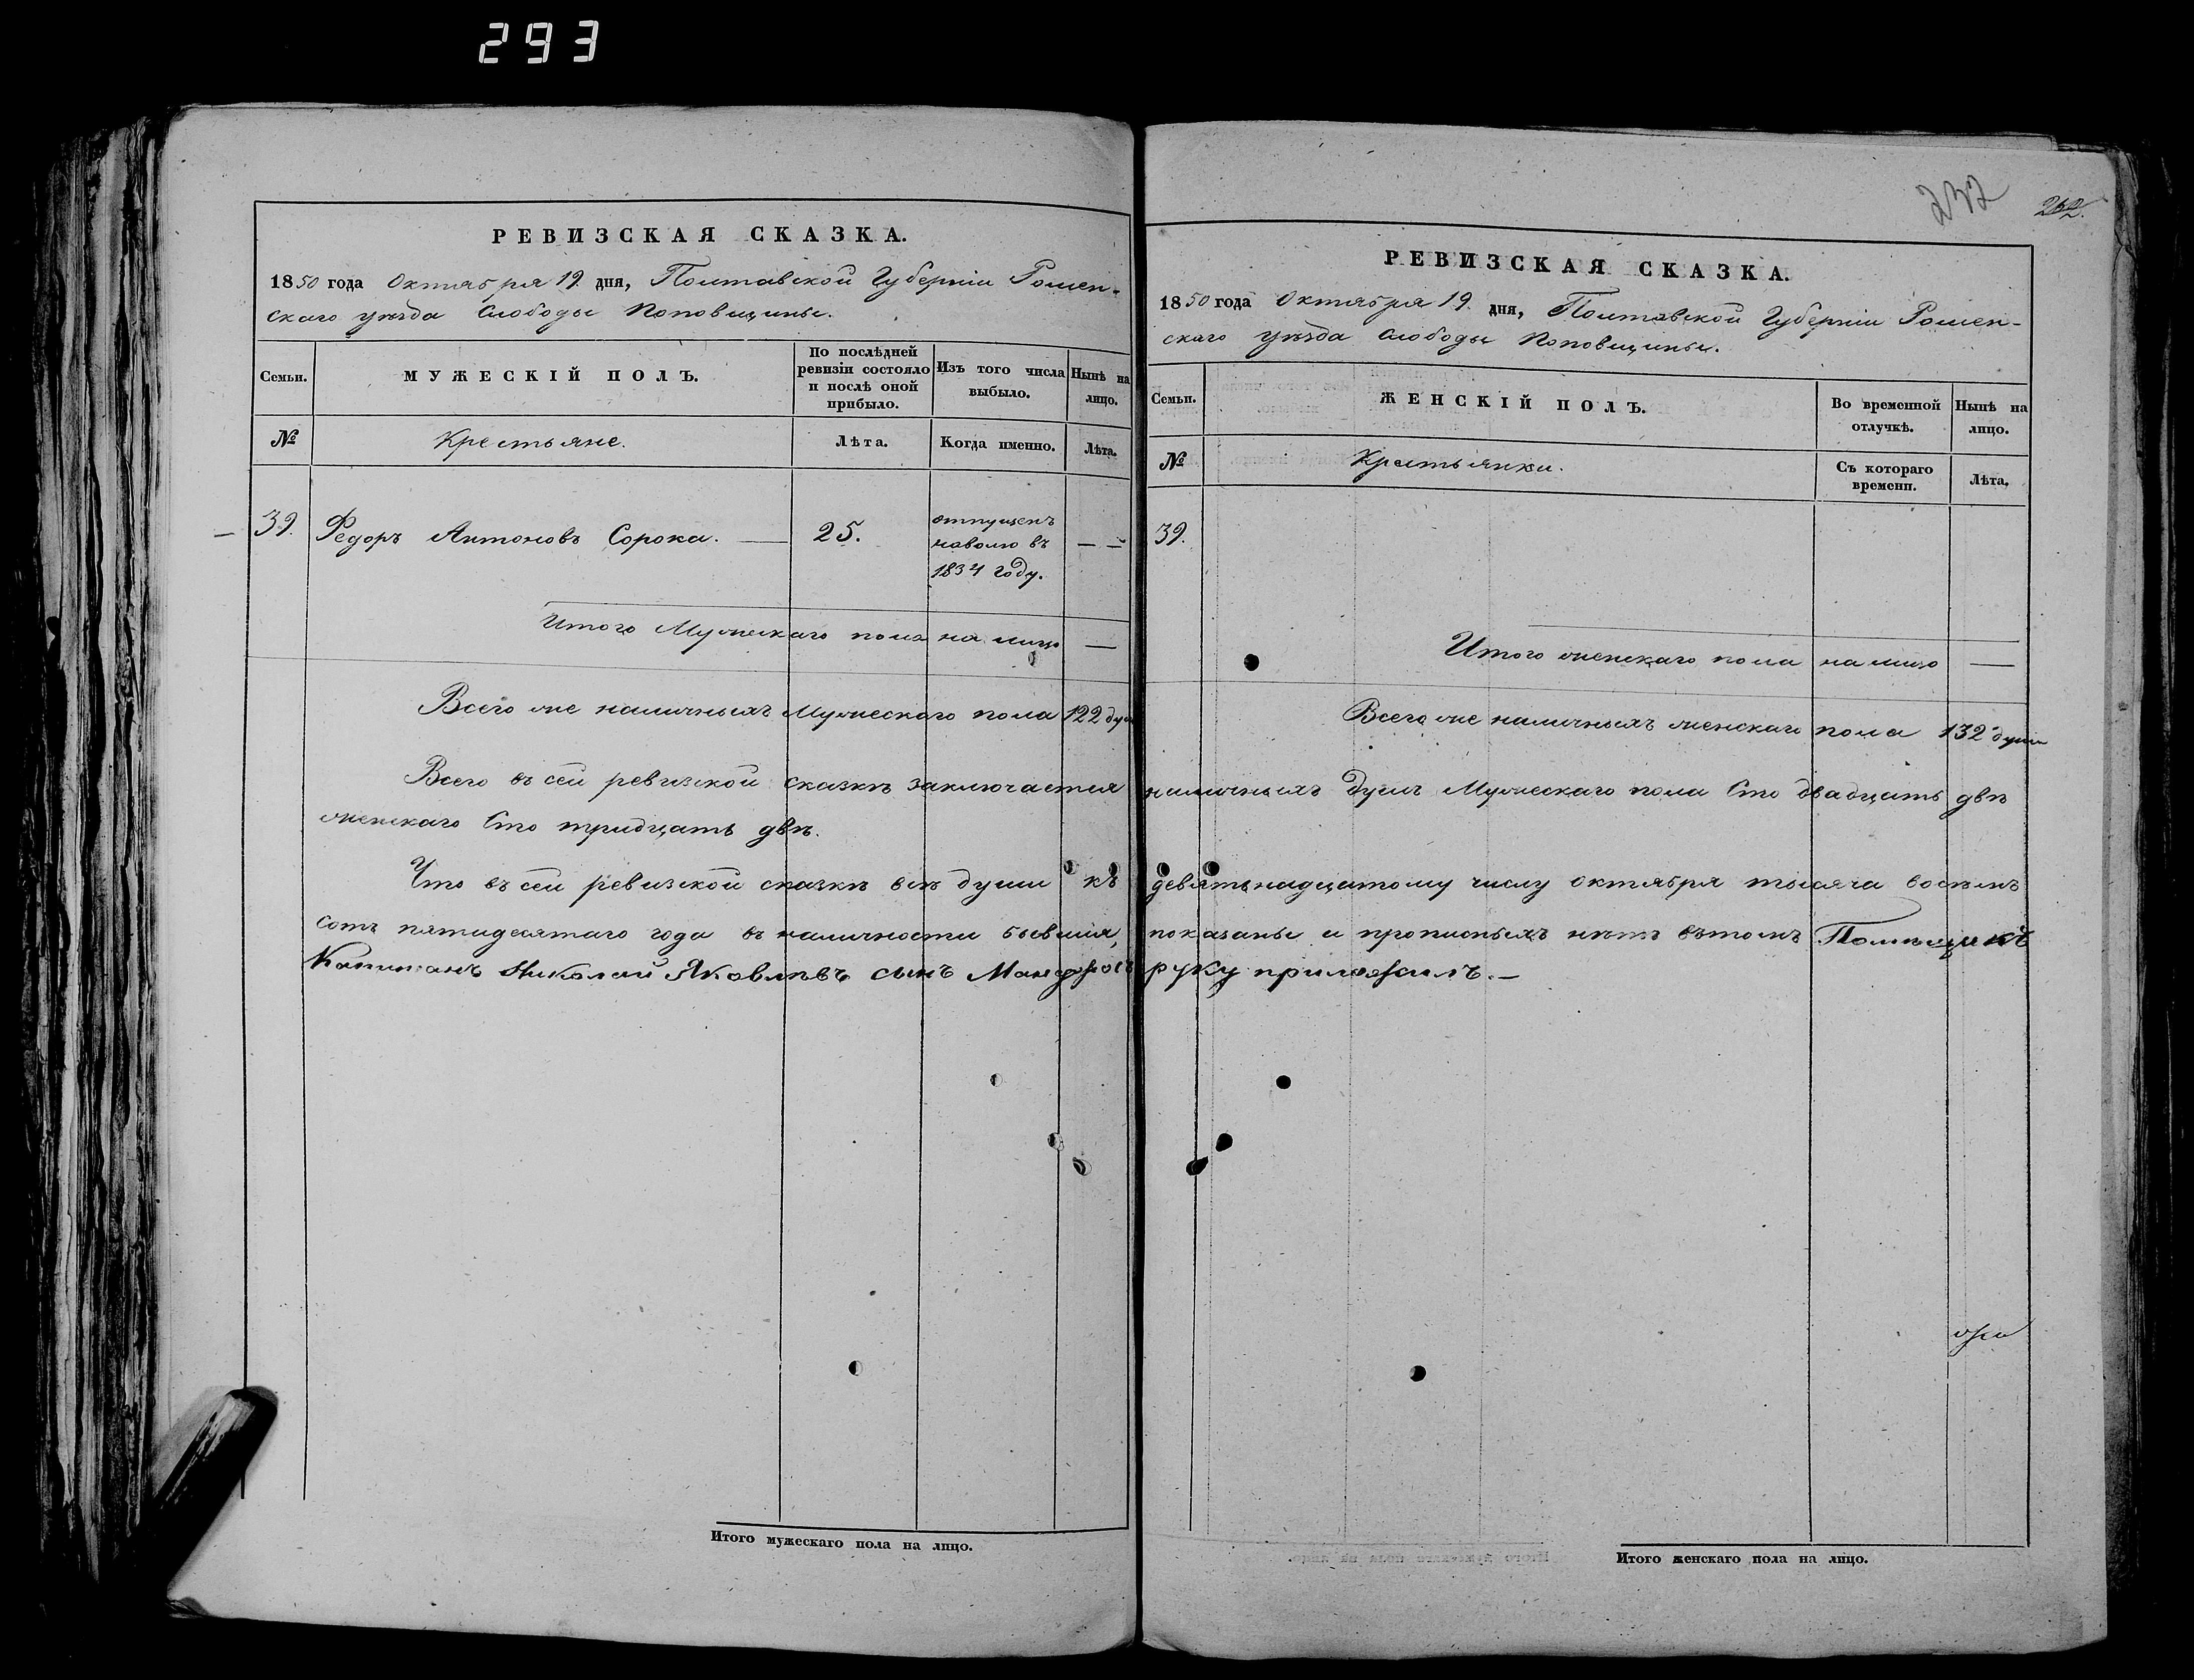 293
РЕВИЗСКАЯ СКАЗКА.
1850 года Октября 19. дня, Полтавской Губерніи Ромен-
скаго уѣзда Слободы Поповщины.
Семьи.
МУЖЕСКІЙ ПОЛЪ.
По послѣдней
ревизіи состояло
и послѣ оной
прибыло.
Изъ того числа
выбыло.
Нынѣ на
лицо.
№
Крестьяне.
Лѣта.
Когда именно.
Лѣта.
39. Федоръ Антоновъ Сорока. — 25.
отпущенъ
наволю въ
1834 году.
— —
Итого Мужескаго пола на лицо —
Всего же наличныхъ Мужескаго пола 122 душ
Всего въ сей ревизской сказкѣ заключается
женскаго Сто тридцать двѣ.
Что въ сей ревизской сказкѣ всѣ души къ
сотъ пятидесятаго года въ наличности бывшія,
Капитанъ Николай Яковлѣвъ сынъ
Итого мужескаго пола на лицо.
232
262.
РЕВИЗСКАЯ СКАЗКА.
1850 года Октября 19. дня, Полтавской Губерніи Ромен-
скаго уѣзда Слободы Поповщины.
Семьи.
ЖЕНСКІЙ ПОЛЪ.
Во временной
отлучкѣ.
Нынѣ на
лицо.
№
Крестьянки.
Съ котораго
времени.
Лѣта.
39.
Итого женскаго пола на лицо —
Всего же наличныхъ женскаго пола 132 души
наличныхъ душъ Мужескаго пола Сто двадцать двѣ
девятьнадцатому числу октября тысяча восемь
показаны и прописныхъ нѣтъ вътомъ Помѣщикъ
руку приложилъ. —
Итого женскаго пола на лицо.